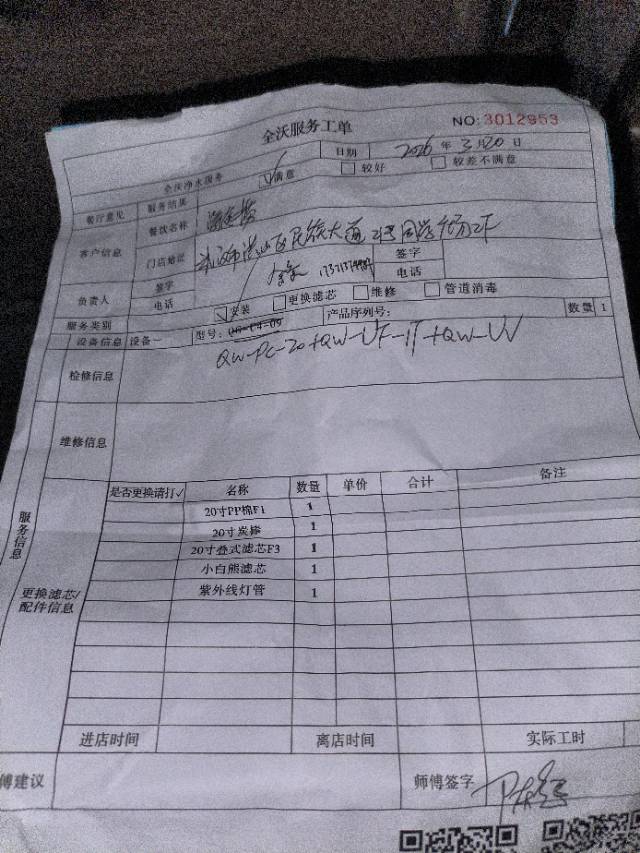 全沃服务工单 NO:3012953
全沃净水服务 日期 2026年3月20日
餐厅意见 服务结果 ☑满意 □较好 □较差不满意
客户信息 餐饮名称
门店地址 武汉市洪山区民族大道
负责人 签字 电话 签字 电话
服务类别 ☑安装 □更换滤芯 □维修 □管道消毒
设备信息 设备一 型号: 产品序列号: 数量 1
检修信息 QW-PC-20+QW-UF-1T+QW-UV
维修信息
服务信息
更换滤芯/配件信息
是否更换请打✓ 名称 数量 单价 合计 备注
20寸PP棉F1 1
20寸炭棒 1
20寸叠式滤芯F3 1
小白熊滤芯 1
紫外线灯管 1
进店时间 离店时间 实际工时
傅建议 师傅签字